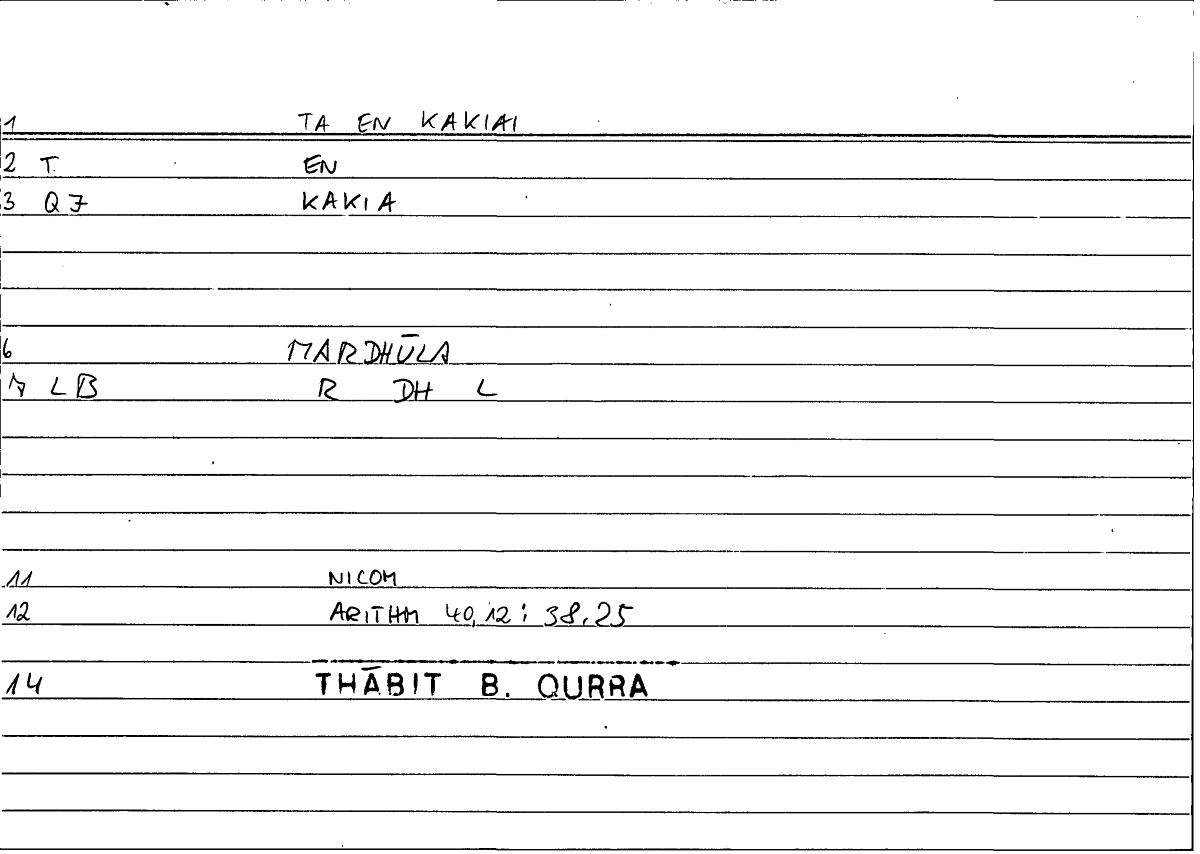 1 TA EN KAKIAI
2 T. EN
3 QF KAKIA
6 MARDHŪLA
7 LB R DH L
11 NICOM
12 ARITHM 40,12 : 38,25
14 THĀBIT B. QURRA